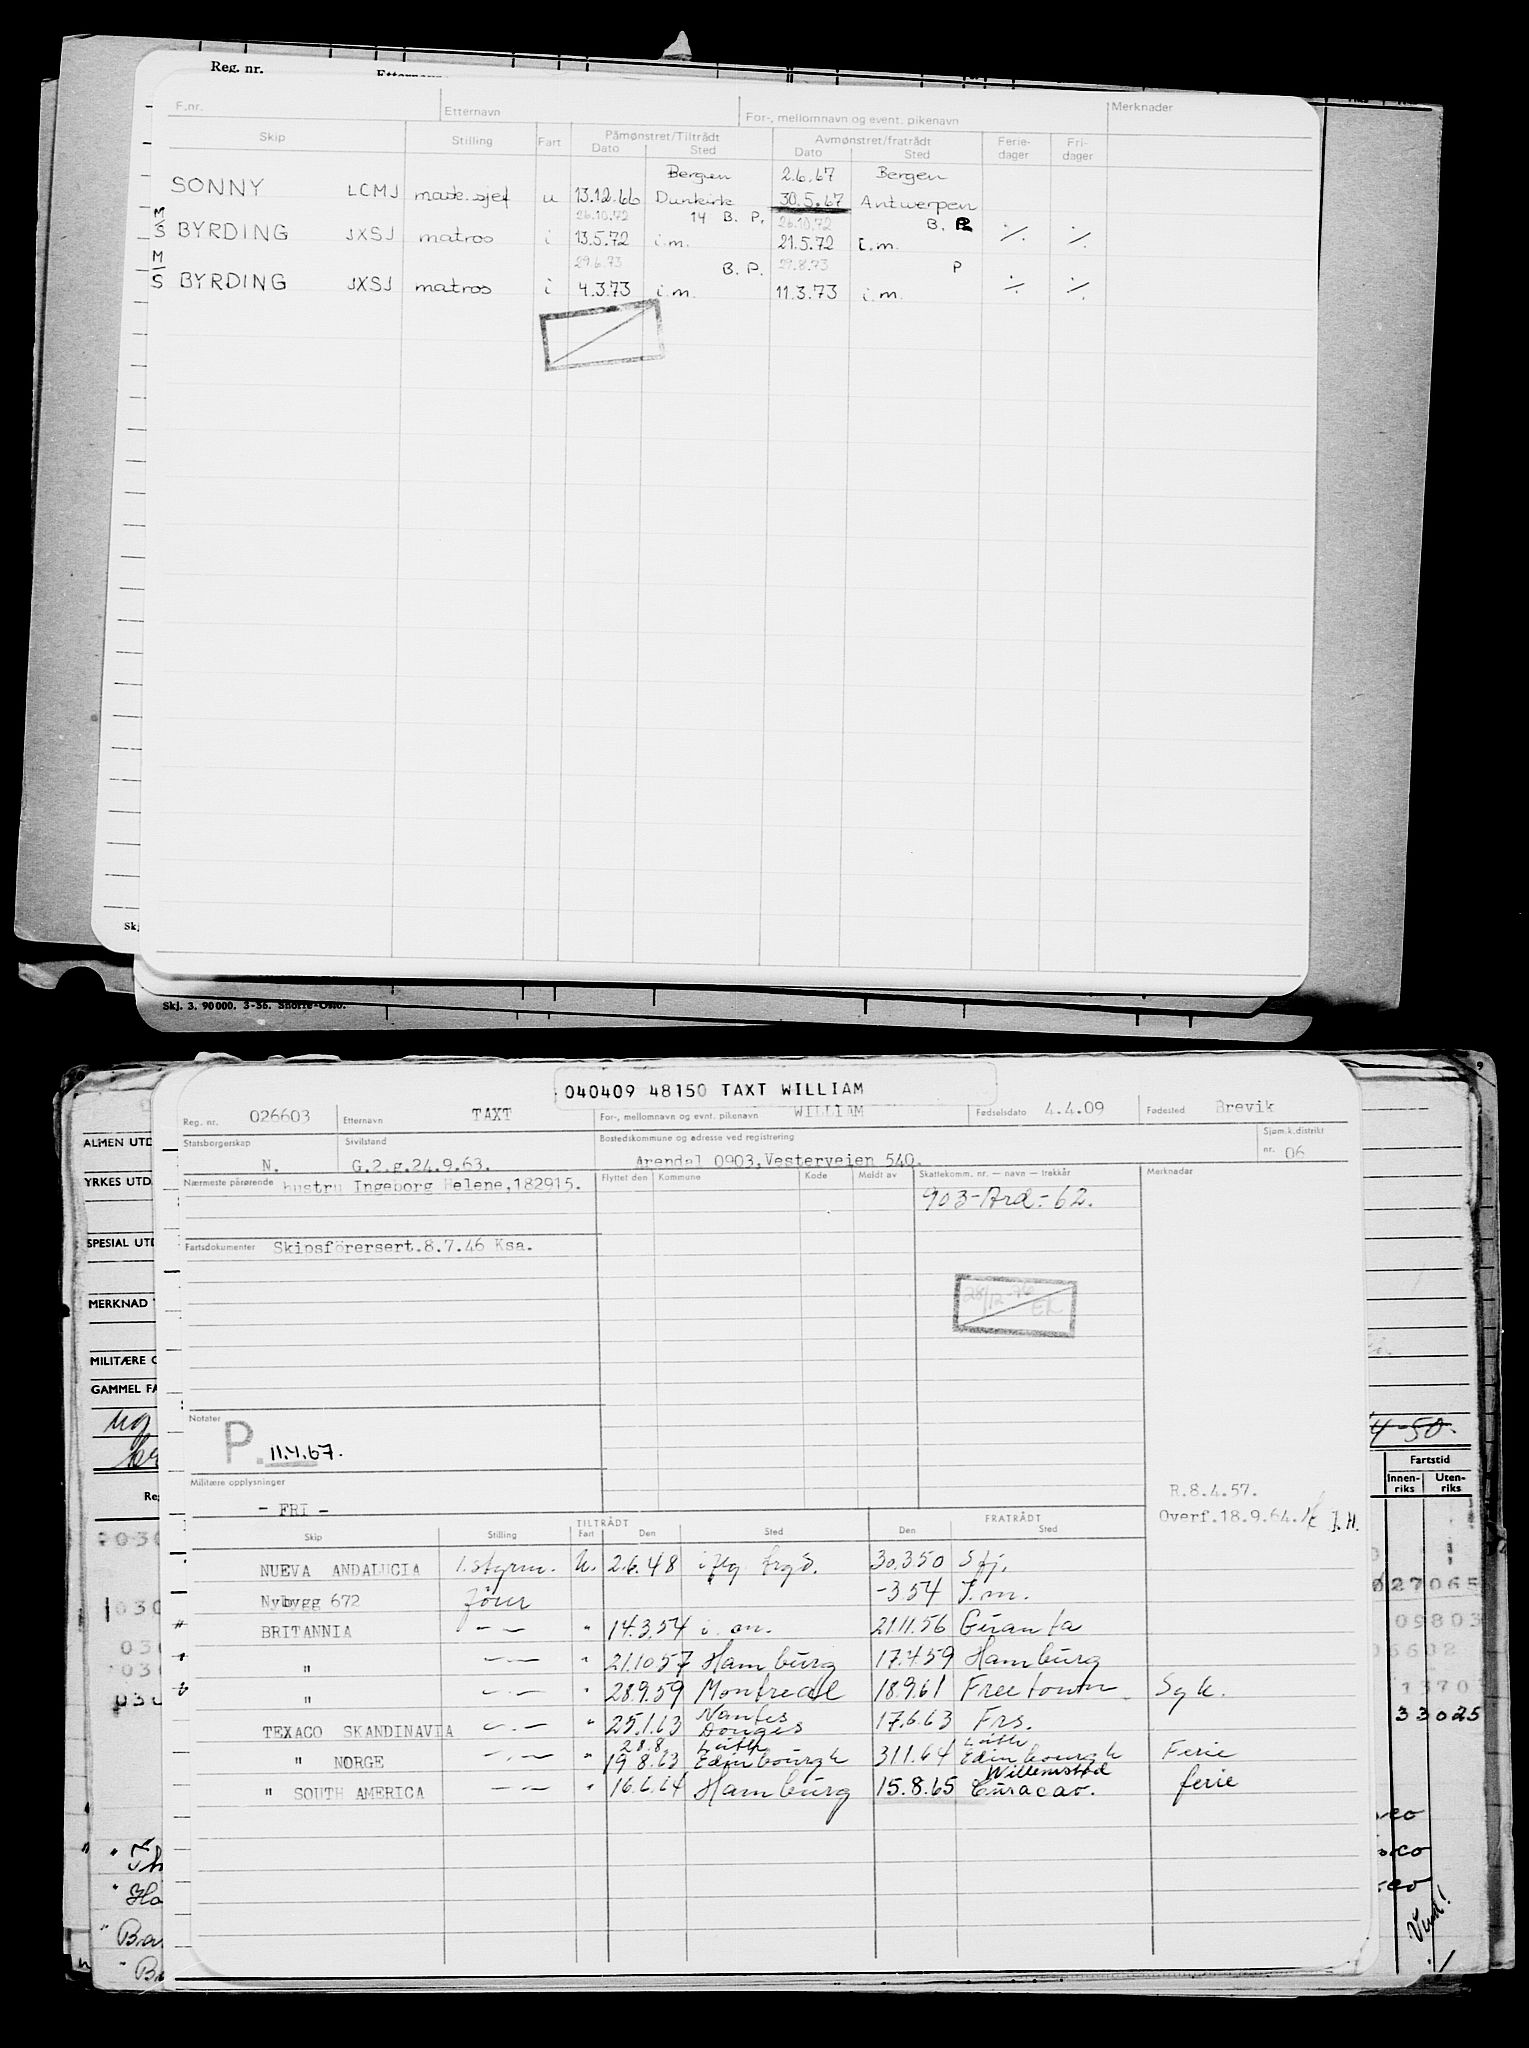 Reg. nr. Etternavn
F.nr. Etternavn For-, mellomnavn og event. pikenavn Merknader
Skip Stilling Fart Påmønstret/Tiltrådt Avmønstret/fratrådt Ferie- Fri-
Dato Sted Dato Sted dager dager
Bergen 2.6.67 Bergen
SONNY LCMJ mask.sjef u 13.12.66 Dunkirk 30.5.67 Antwerpen
26.10.72 14 B. P. 26.10.72 B. P.
M/S BYRDING JXSJ matros i 13.5.72 i.m. 21.5.72 i.m. ·/. ·/.
29.6.73 B. P. 29.8.73 P
M/S BYRDING JXSJ matros i 4.3.73 i.m. 11.3.73 i.m. ·/. ·/.
Skj
Skj. 3. 90000. 3-56. Snorre-Oslo.
040409 48150 TAXT WILLIAM
Reg. nr. 026603 Etternavn TAXT For-, mellomnavn og evnt. pikenavn WILLIAM Fødselsdato 4.4.09 Fødested Brevik
Statsborgerskap Sivilstand Bostedskommune og adresse ved registrering Sjøm.k.distrikt
N. G.2.g.24.9.63. Arendal 0903,Vesterveien 540. nr. 06
Nærmeste pårørende hustru Ingeborg Helene,182915. Flyttet den Kommune Kode Meldt av Skattekomm. nr. — navn — trekkår Merknader
903-Ard.- 62.
Fartsdokumenter Skipsförersert.8.7.46 Ksa.
28/12-76 EL
Notater
P. 11.1.67.
Militære opplysninger
- FRI -
R.8.4.57.
Overf.18.9.64. J.H.
TILTRÅDT FRATRÅDT
Skip Stilling Fart Den Sted Den Sted
NUEVA ANDALUCIA 1.styrm. U. 2.6.48 30.3.50
Nybygg 672 förer -3 54 I.m.
BRITANNIA — " — " 14.3.54 i. m. 21.11.56
" — " — " 21.10 57 Hamburg 17.4 59 Hamburg
" — " — " 28.9.59 Montreal 18.9.61 Freetown Syk.
TEXACO SKANDINAVIA — " — " 25.1.63 Nantes Donges 17.6.63 Frs.
" NORGE — " — " 28.8. 19 8.63 Leith Edinbourgh 31.1.64 Leith Edinbourgh Ferie
" SOUTH AMERICA — " — " 16.6.64 Hamburg 15.8.65 Willemstad Curacao. ferie
ALMEN UTD
YRKES UTD.
SPESIAL UTD
MERKNAD
MILITÆRE O
GAMMEL FA
Reg
4-50.
Fartstid
Innen-riks Uten-riks
27065
09803
1370
33025
Vend!